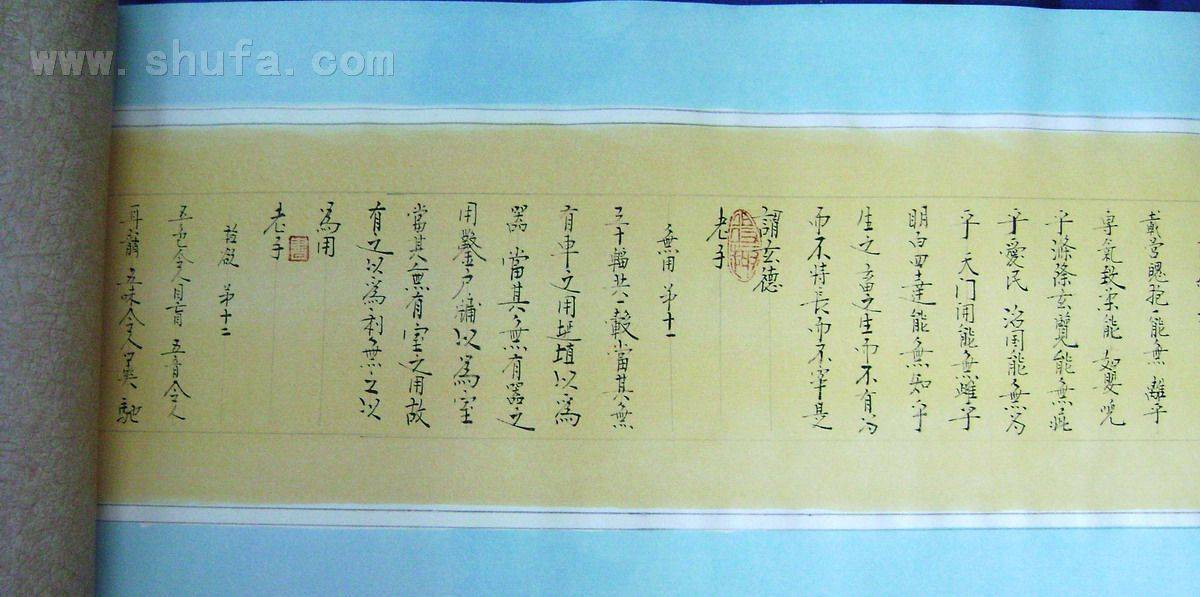 www.shufa.com
載营魄抱一能無離乎
專氣致柔能如嬰児
乎滌除玄覽能無疵
乎愛民治国能無为
乎天门開能無雌乎
明白四達能無知乎
生之畜之生而不有为
而不恃長而不宰是
謂玄德
老子
無用 第十一
三十輻共一轂當其無
有車之用埏埴以為
器當其無有器之
用鑿户牖以為室
當其無有室之用故
有之以為利無之以
為用
老子
書
第十二
五色令人目盲五音令人
耳聾五味令人口爽馳